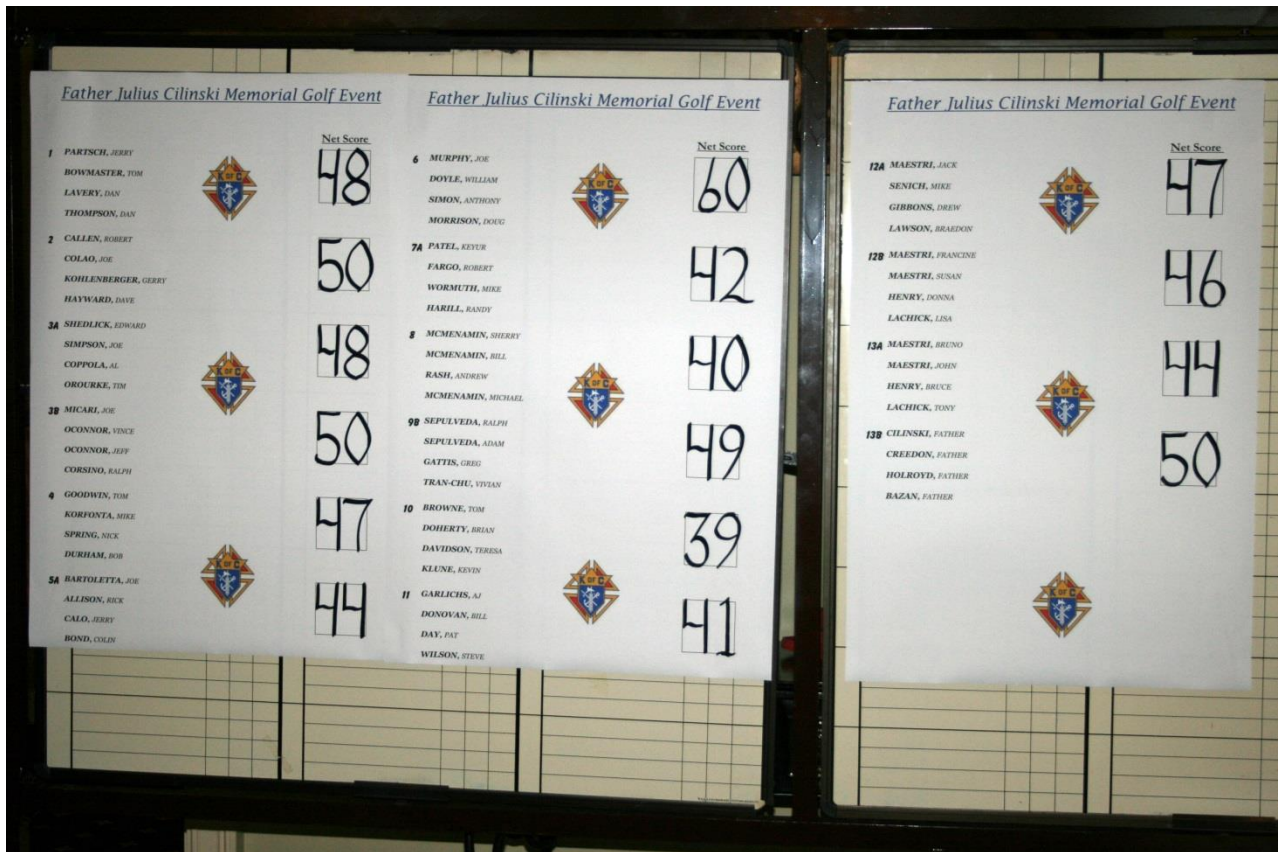 Father Julius Cilinski Memorial Golf Event
Net Score
1 PARTSCH, JERRY
BOWMASTER, TOM
LAVERY, DAN
THOMPSON, DAN
48
2 CALLEN, ROBERT
COLAO, JOE
KOHLENBERGER, GERRY
HAYWARD, DAVE
50
3A SHEDLICK, EDWARD
SIMPSON, JOE
COPPOLA, AL
OROURKE, TIM
48
3B MICARI, JOE
OCONNOR, VINCE
OCONNOR, JEFF
CORSINO, RALPH
50
4 GOODWIN, TOM
KORFONTA, MIKE
SPRING, NICK
DURHAM, BOB
47
5A BARTOLETTA, JOE
ALLISON, RICK
CALO, JERRY
BOND, COLIN
44
K OF C
K OF C
K OF C
Father Julius Cilinski Memorial Golf Event
Net Score
6 MURPHY, JOE
DOYLE, WILLIAM
SIMON, ANTHONY
MORRISON, DOUG
60
7A PATEL, KEYUR
FARGO, ROBERT
WORMUTH, MIKE
HARILL, RANDY
42
8 MCMENAMIN, SHERRY
MCMENAMIN, BILL
RASH, ANDREW
MCMENAMIN, MICHAEL
40
9B SEPULVEDA, RALPH
SEPULVEDA, ADAM
GATTIS, GREG
TRAN-CHU, VIVIAN
49
10 BROWNE, TOM
DOHERTY, BRIAN
DAVIDSON, TERESA
KLUNE, KEVIN
39
11 GARLICHS, AJ
DONOVAN, BILL
DAY, PAT
WILSON, STEVE
41
K OF C
K OF C
K OF C
Father Julius Cilinski Memorial Golf Event
Net Score
12A MAESTRI, JACK
SENICH, MIKE
GIBBONS, DREW
LAWSON, BRAEDON
47
12B MAESTRI, FRANCINE
MAESTRI, SUSAN
HENRY, DONNA
LACHICK, LISA
46
13A MAESTRI, BRUNO
MAESTRI, JOHN
HENRY, BRUCE
LACHICK, TONY
44
13B CILINSKI, FATHER
CREEDON, FATHER
HOLROYD, FATHER
BAZAN, FATHER
50
K OF C
K OF C
K OF C